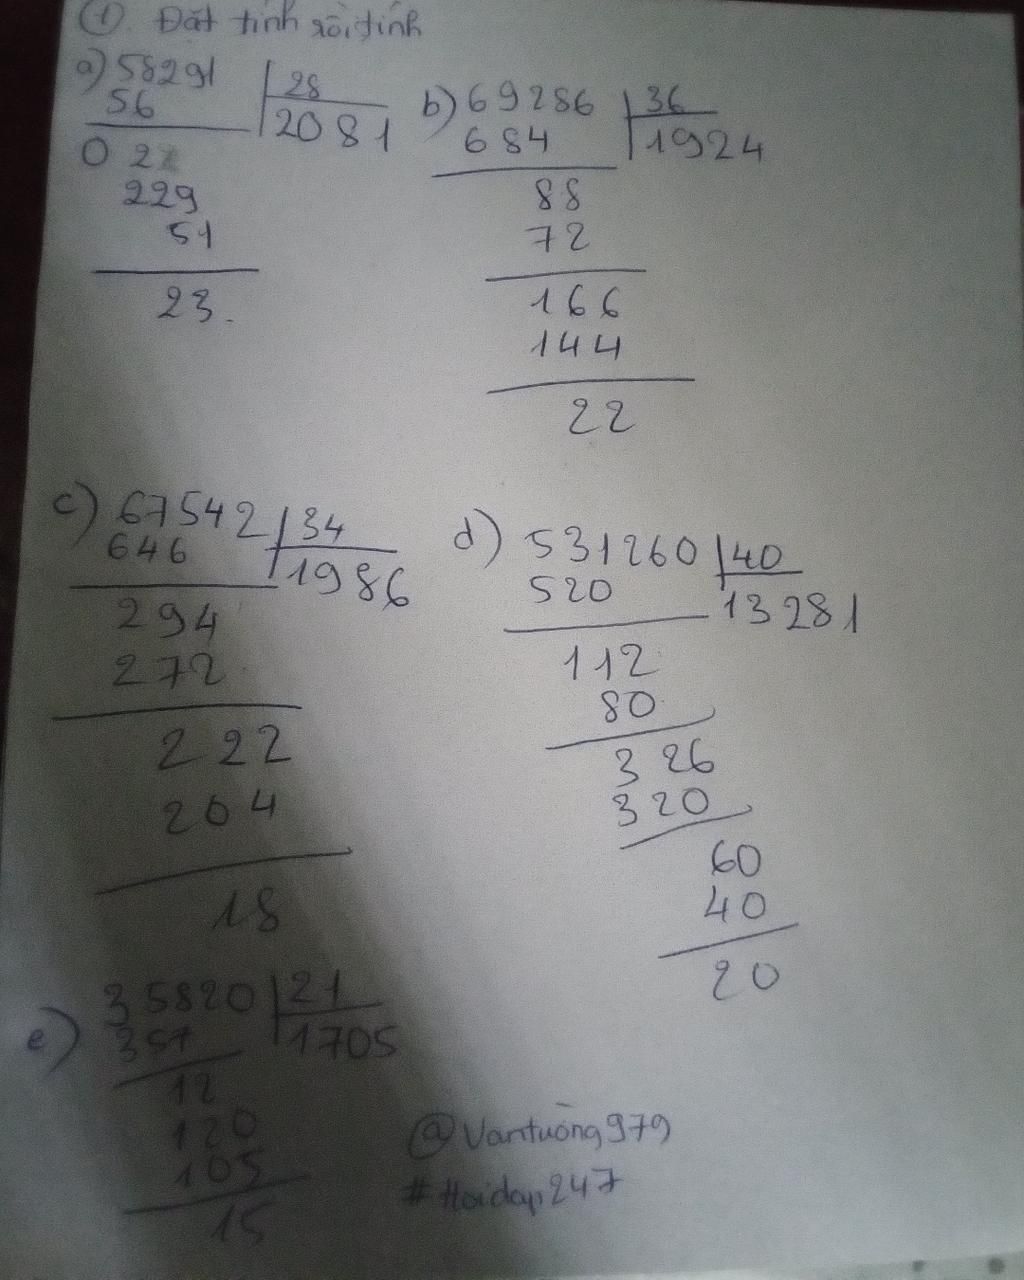 ① Đặt tính rồi tính
a) 58291 | 28
56 | 2081
0 2
229
51
23.
b) 69286 | 36
684 | 1924
88
72
166
144
22
c) 67542 | 34
646 | 1986
294
272
222
204
18
d) 531260 | 40
520 | 13281
112
80
326
320
60
40
20
e) 35820 | 21
357 | 1705
12
120
105
15
@Vantuong979
#Hoidap247